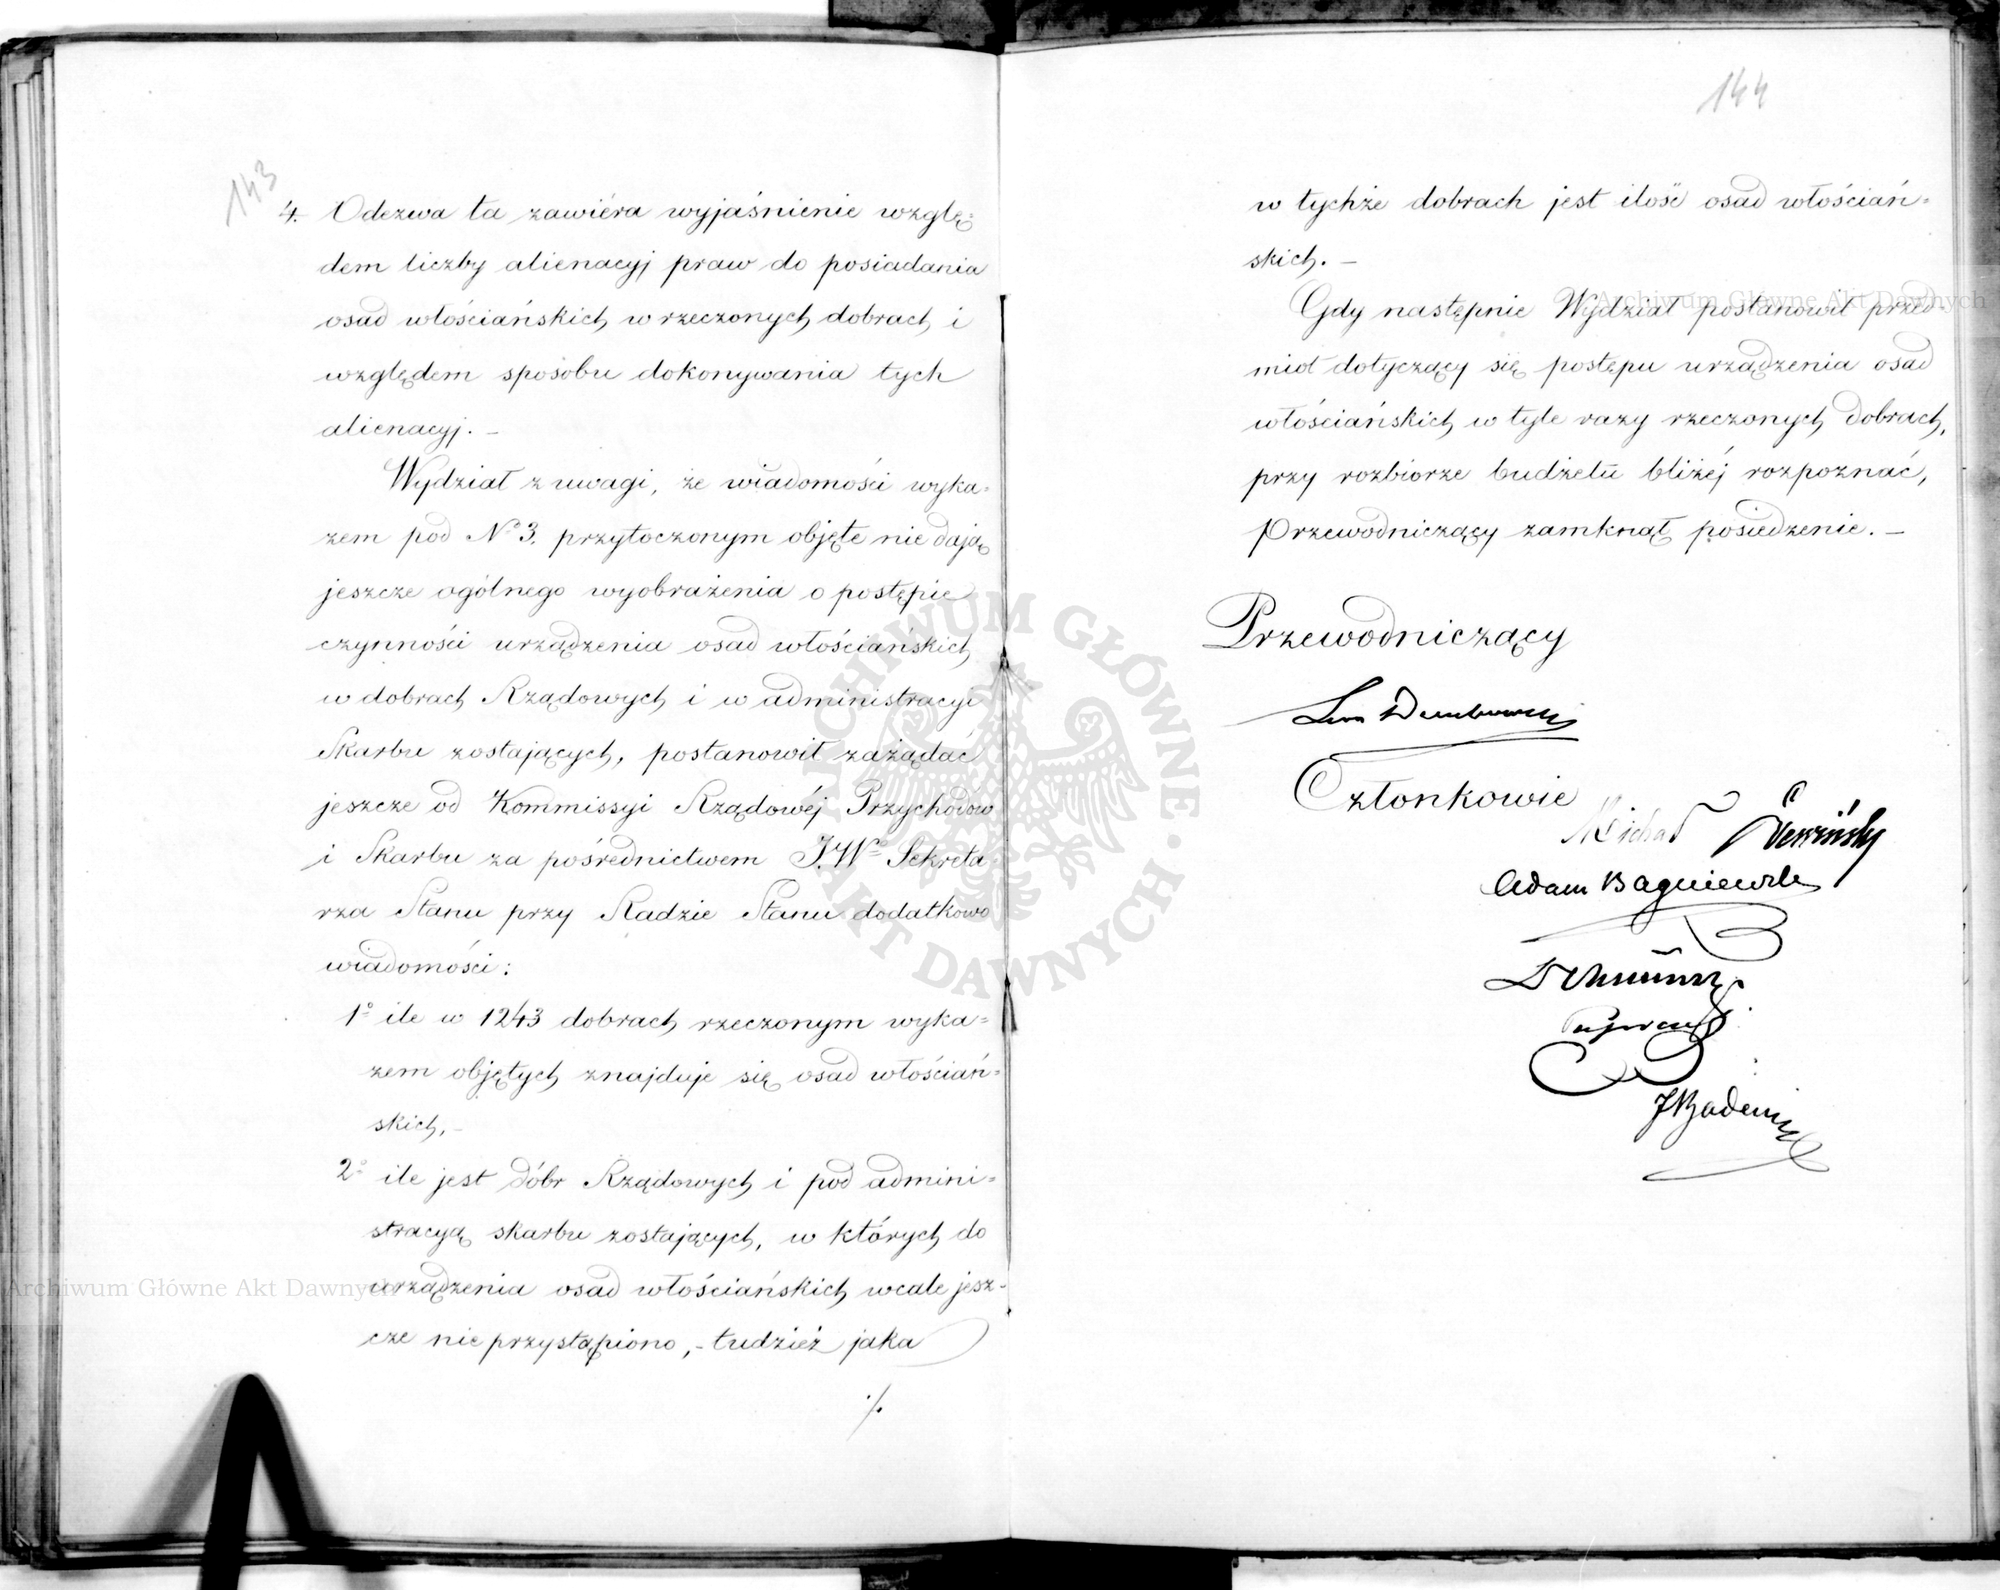 143
4. Odezwa ta zawiéra wyjaśnienie wzglę-
dem liczby alienacyj praw do posiadania
osad włościańskich w rzeczonych dobrach i
względem sposobu dokonywania tych
alienacyj. –
Wydział z uwagi, że wiadomości wyka-
zem pod Nº 3. przytoczonym objęte nie dają
jeszcze ogólnego wyobrażenia o postępie
czynności urządzenia osad włościańskich
w dobrach Rządowych i w administracyi
Skarbu zostających, postanowił zażądać
jeszcze od Kommissyi Rządowéj Przychodów
i Skarbu za pośrednictwem J.Wº Sekreta-
rza Stanu przy Radzie Stanu dodatkowo
wiadomości:
1º ile w 1243 dobrach rzeczonym wyka-
zem objętych znajduje się osad włościań-
skich, –
2º ile jest dóbr Rządowych i pod admini-
stracyą skarbu zostających, w których do
urządzenia osad włościańskich wcale jesz-
cze nie przystąpiono, – tudzież jaka
./.
144
w tychże dobrach jest ilość osad włościań-
skich. –
Gdy następnie Wydział postanowił przed-
miot dotyczący się postępu urządzenia osad
włościańskich w tyle razy rzeczonych dobrach,
przy rozbiorze budżetu bliżéj rozpoznać,
Przewodniczący zamknął posiedzenie. –
Przewodniczący
Leon Dembowski
Członkowie
Michał
Adam Bagniewski
JBadeni
Archiwum Główne Akt Dawnych
Archiwum Główne Akt Dawnych
ARCHIWUM GŁÓWNE AKT DAWNYCH